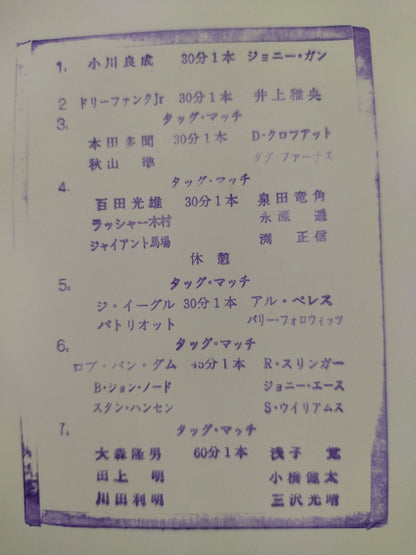 1. 小川良成 30分1本 ジョニー・ガン
2 ドリーファンクJr 30分1本 井上雅央
3. タッグ・マッチ
本田多聞 30分1本 D-クロファット
秋山 準 ダグ・ファーナス
4. タッグ・マッチ
百田光雄 30分1本 泉田竜角
ラッシャー木村 永源 遥
ジャイアント馬場 渕 正信
休憩
5. タッグ・マッチ
ジ・イーグル 30分1本 アル・ペレス
パトリオット バリー・フォロウィッツ
6. タッグ・マッチ
ロブ・バン・ダム 45分1本 R・スリンガー
B・ジョン・ノード ジョニー・エース
スタン・ハンセン S・ウイリアムス
7. タッグ・マッチ
大森隆男 60分1本 浅子 覚
田上 明 小橋健太
川田利明 三沢光晴